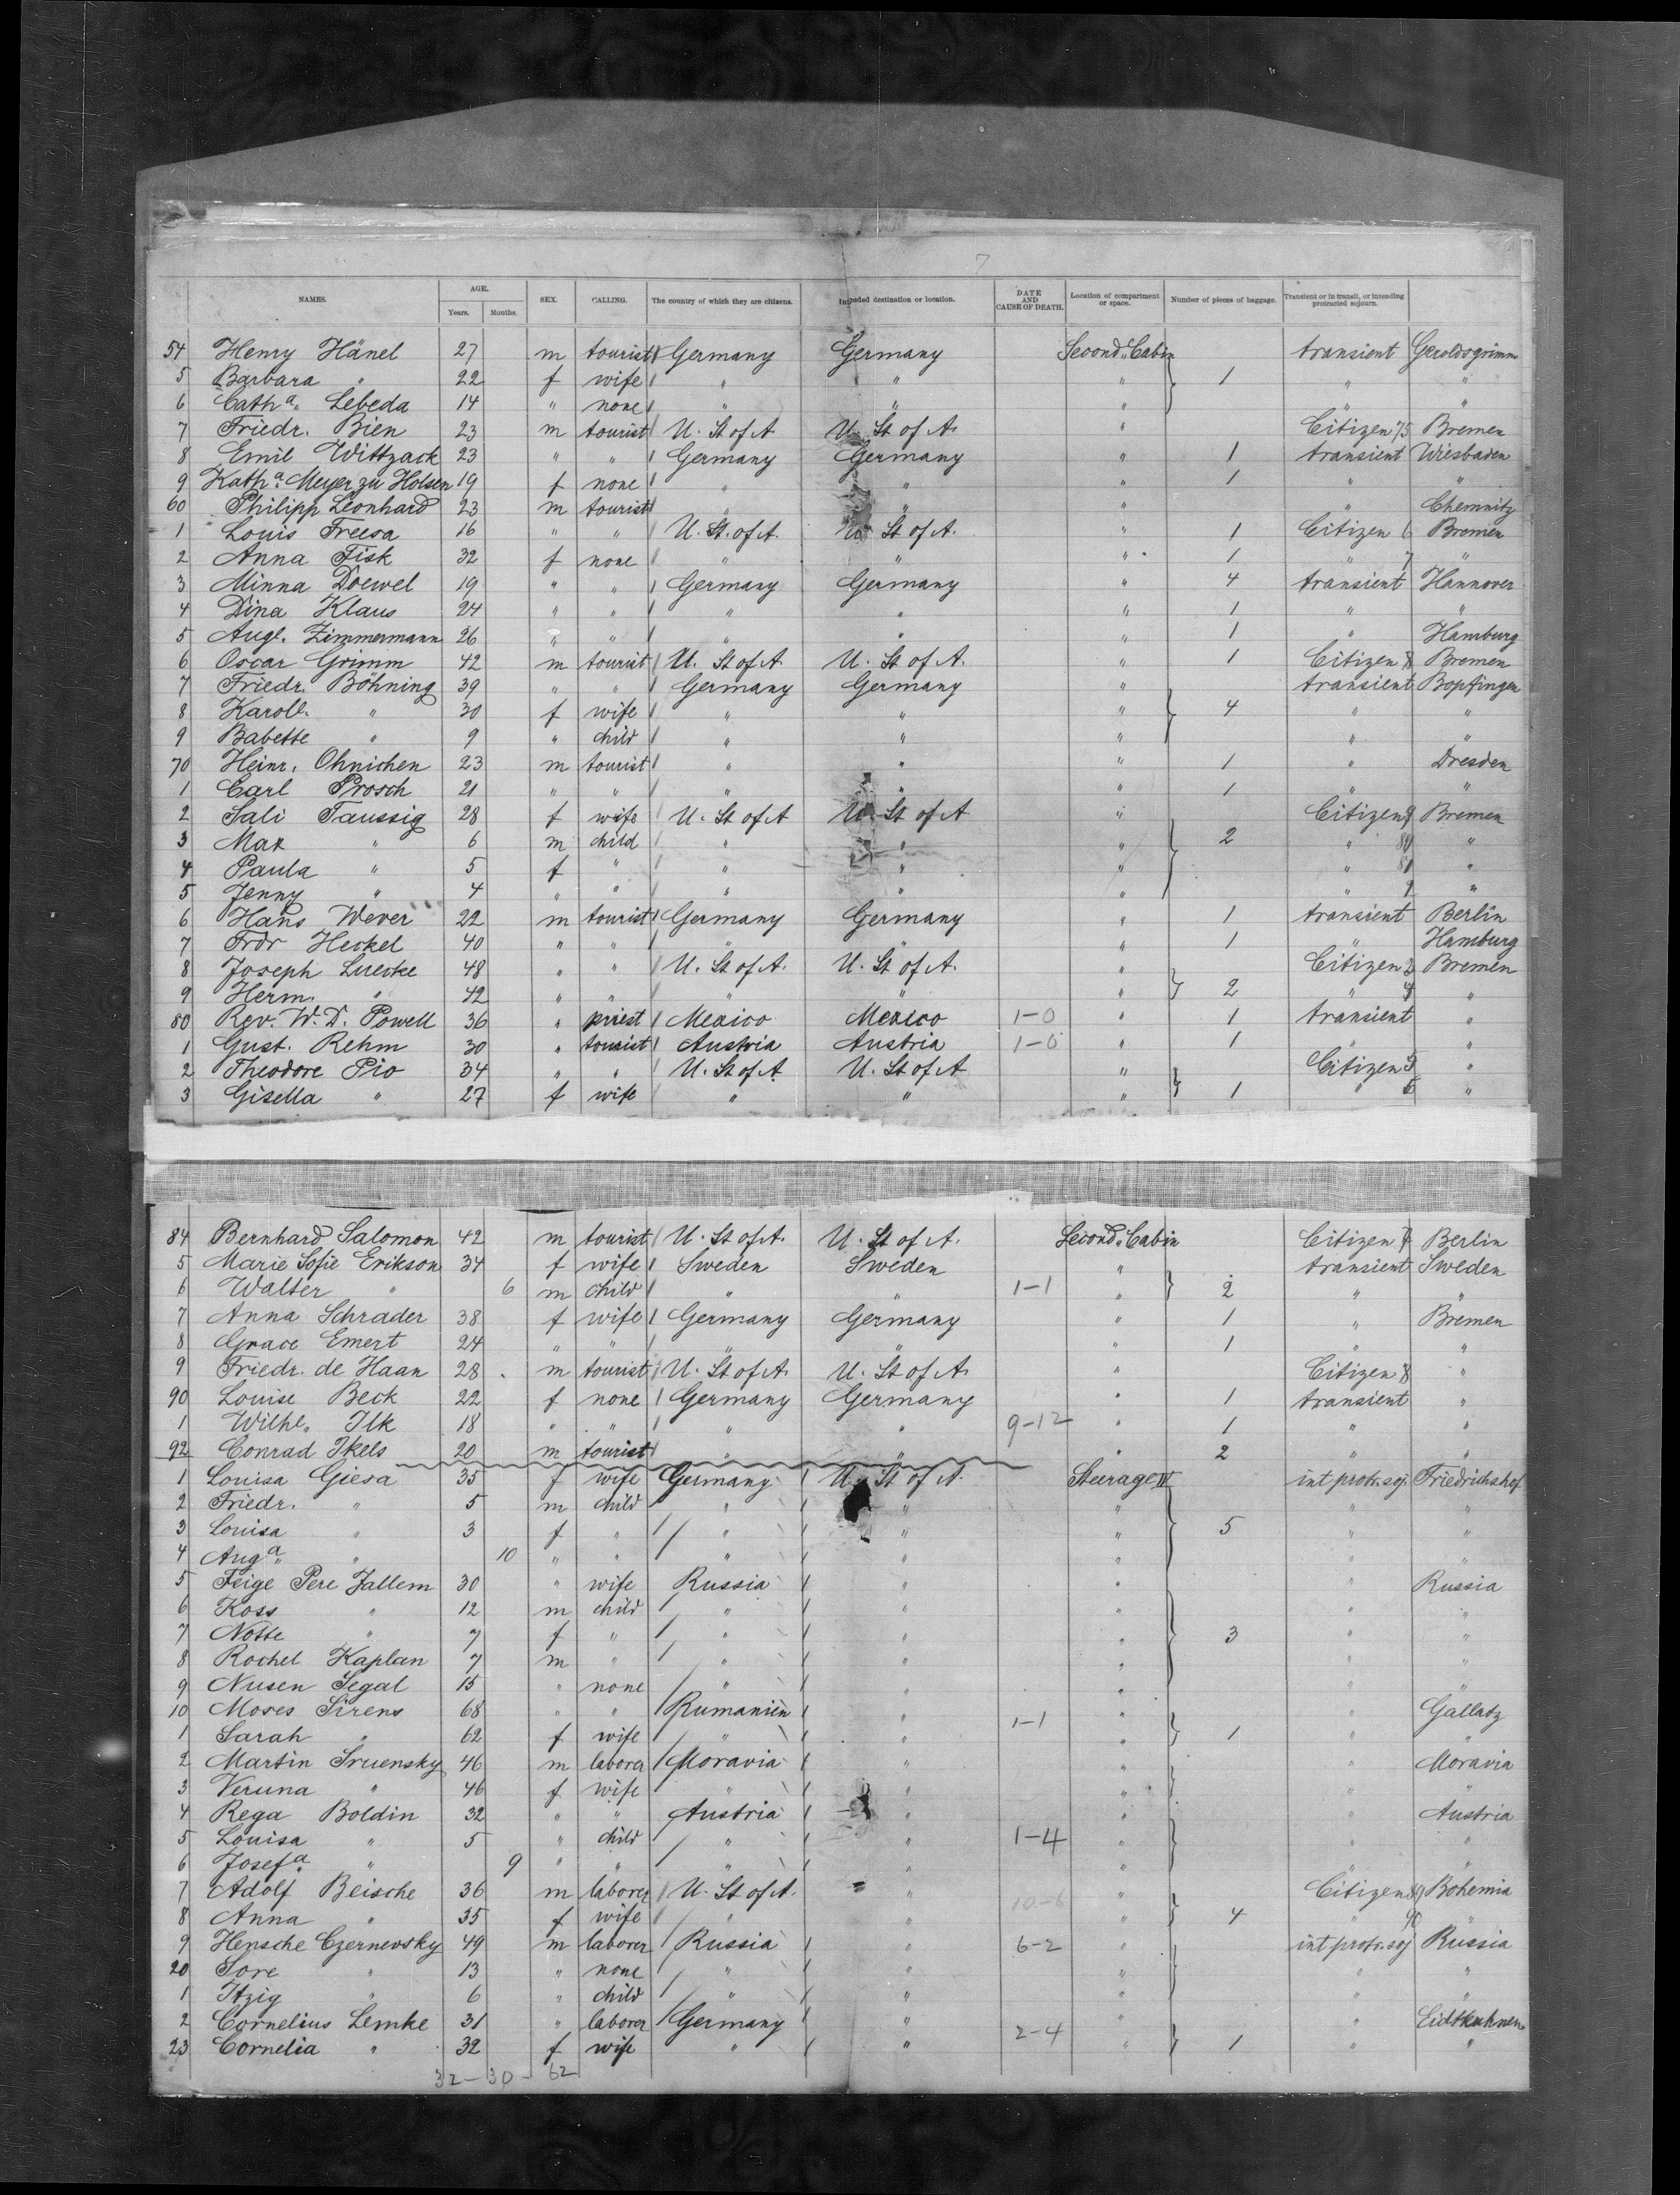 7
NAMES. AGE. Years. Months. SEX. CALLING. The country of which they are citizens. Intended destination or location. DATE AND CAUSE OF DEATH. Location of compartment or space. Number of pieces of baggage. Transient or in transit, or intending protracted sojourn.
54 Henry Hänel 27 m tourist Germany Germany Second Cabin transient Geroldsgrimm
5 Barbara " 22 f wife " " " 1 " "
6 Cath a. Lebeda 14 " none " " " "
7 Friedr. Bien 23 m tourist U. St of A. U. St of A. " Citizen 75 Bremen
8 Emil Wittzack 23 " " Germany Germany " 1 transient Wiesbaden
9 Kath a. Meyer zu Holsen 19 f none " " " 1 " "
60 Philipp Leonhard 23 m tourist " " " " Chemnitz
1 Louis Freesa 16 " " U. St. of A. U. St of A. " 1 Citizen 6 Bremen
2 Anna Fisk 32 f none " " " 1 " 7 "
3 Minna Doewel 19 " " Germany Germany " 4 transient Hannover
4 Dina Klaus 24 " " " " " 1 " "
5 Augl. Zimmermann 26 " " " " " 1 " Hamburg
6 Oscar Grimm 42 m tourist U. St of A. U. St of A. " 1 Citizen 8 Bremen
7 Friedr. Böhning 39 " " Germany Germany " transient Bopfingen
8 Karoll. " 30 f wife " " " 4 " "
9 Babette " 9 " child " " " " "
70 Heinr. Ohnichen 23 m tourist " " " 1 " Dresden
1 Carl Prosch 21 " " " " " 1 " "
2 Sali Taussig 28 f wife U. St of A U. St of A " Citizen 9 Bremen
3 Max " 6 m child " " " 2 " 80 "
4 Paula " 5 f " " " " " 81 "
5 Jenny " 4 " " " " " " 2 "
6 Hans Wever 22 m tourist Germany Germany " 1 transient Berlin
7 Frdr Heckel 40 " " " " " 1 " Hamburg
8 Joseph Luecke 48 " " U. St of A. U. St of A. " Citizen 3 Bremen
9 Herm. " 42 " " " " " 2 " 4 "
80 Rev. W. D. Powell 36 " priest Mexico Mexico 1-0 " 1 transient "
1 Gust. Rehm 30 " tourist Austria Austria 1-0 " 1 " "
2 Theodore Pio 34 " " U. St of A. U. St of A " Citizen 5 "
3 Gisella " 27 f wife " " " 1 " 6 "
84 Bernhard Salomon 42 m tourist U. St of A. U. St of A. Second Cabin Citizen 7 Berlin
5 Marie Sofie Erikson 34 f wife Sweden Sweden " transient Sweden
6 Walter " 6 m child " " 1-1 " 2 " "
7 Anna Schrader 38 f wife Germany Germany " 1 " Bremen
8 Grace Emert 24 " " " " " 1 " "
9 Friedr. de Haan 28 m tourist U. St of A. U. St of A. " Citizen 8 "
90 Louise Beck 22 f none Germany Germany " 1 transient "
1 Wilhe. Ilk 18 " " " " 9-12 " 1 " "
92 Conrad Ikels 20 m tourist " " " 2 " "
1 Louisa Giesa 35 f wife Germany U. St of A. Steerage IV int protr. soj. Friedrichshof
2 Friedr. " 5 m child " " " " "
3 Louisa " 3 f " " " " 5 " "
4 Aug a " 10 " " " " " " "
5 Feige Pere Jallem 30 " wife Russia " " " Russia
6 Koss " 12 m child " " " " "
7 Notte " 7 f " " " " 3 " "
8 Rochel Kaplan 7 m " " " " " "
9 Nusen Segal 15 " none " " " " "
10 Moses Sirens 68 " " Rumanien " 1-1 " " Gallatz
1 Sarah " 62 f wife " " " 1 " "
2 Martin Sruensky 46 m laborer Moravia " " " Moravia
3 Veruna " 46 f wife " " " " "
4 Rega Boldin 32 " " Austria " " " Austria
5 Louisa " 5 " child " " 1-4 " " "
6 Josef a " 9 " " " " " " "
7 Adolf Beische 36 m laborer U. St of A. " 10-6 " Citizen 89 Bohemia
8 Anna " 35 f wife " " " 4 " 90 "
9 Hensche Czernevsky 49 m laborer Russia " 6-2 " int protr. soj Russia
20 Sore " 13 " none " " " " "
1 Itzig " 6 " child " " " " "
2 Cornelius Lemke 31 " laborer Germany " 2-4 " " Eidtkuhnen
23 Cornelia " 32 f wife " " " 1 " "
32 - 30 - 62